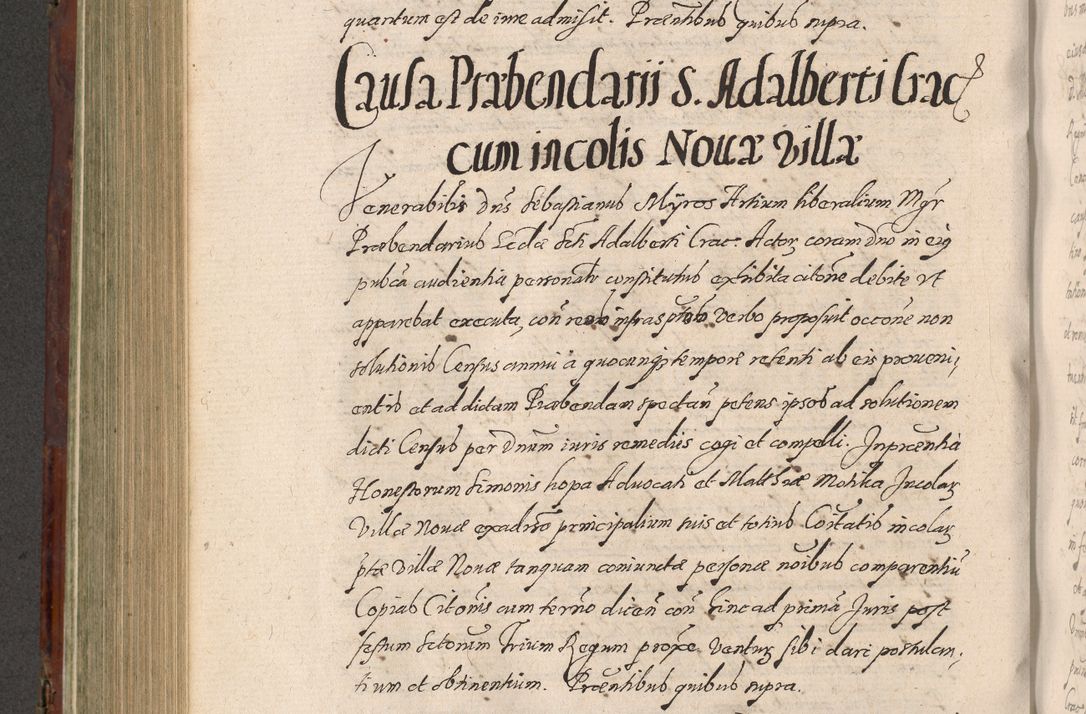 quantum est de iure admisit. Præntibus quibus supra.
Causa Præbendarii S. Adalberti Crac
cum incolis Nouæ Villæ
Venerabilis Dns Sebastianus Myros Artium liberalium Mgr
Præbendarius Eccłæ Scti Adalberti Crac: Actor coram dno in eius
publica audientia personalr constitutus exhibita citone debite vt
apparebat executa, con reos infrascriptos verbo proposuit occone non
solutionis Census annui a quocunq3 tempore retenti ab eis proueni,
entis et ad dictam Præbendam spectan petens ipsos ad solutionem
dicti Census per Dnum iuris remediis cogi et compelli. In præntia
Honestorum Simonis hopa Aduocati et Matthiæ Motika Incolar
Villæ Nouæ ex aduerso principalium suis et totius Coitatis incolar
ptæ Villæ Nouæ tanquam coniunctæ personæ noibus comparentiu
Copias Citonis cum termo dicen con hinc ad prima Juris post
festum Sctorum Trium Regum proxe Ventur sibi dari postulan,
tium et obtinentium. Præntibus quibus supra.